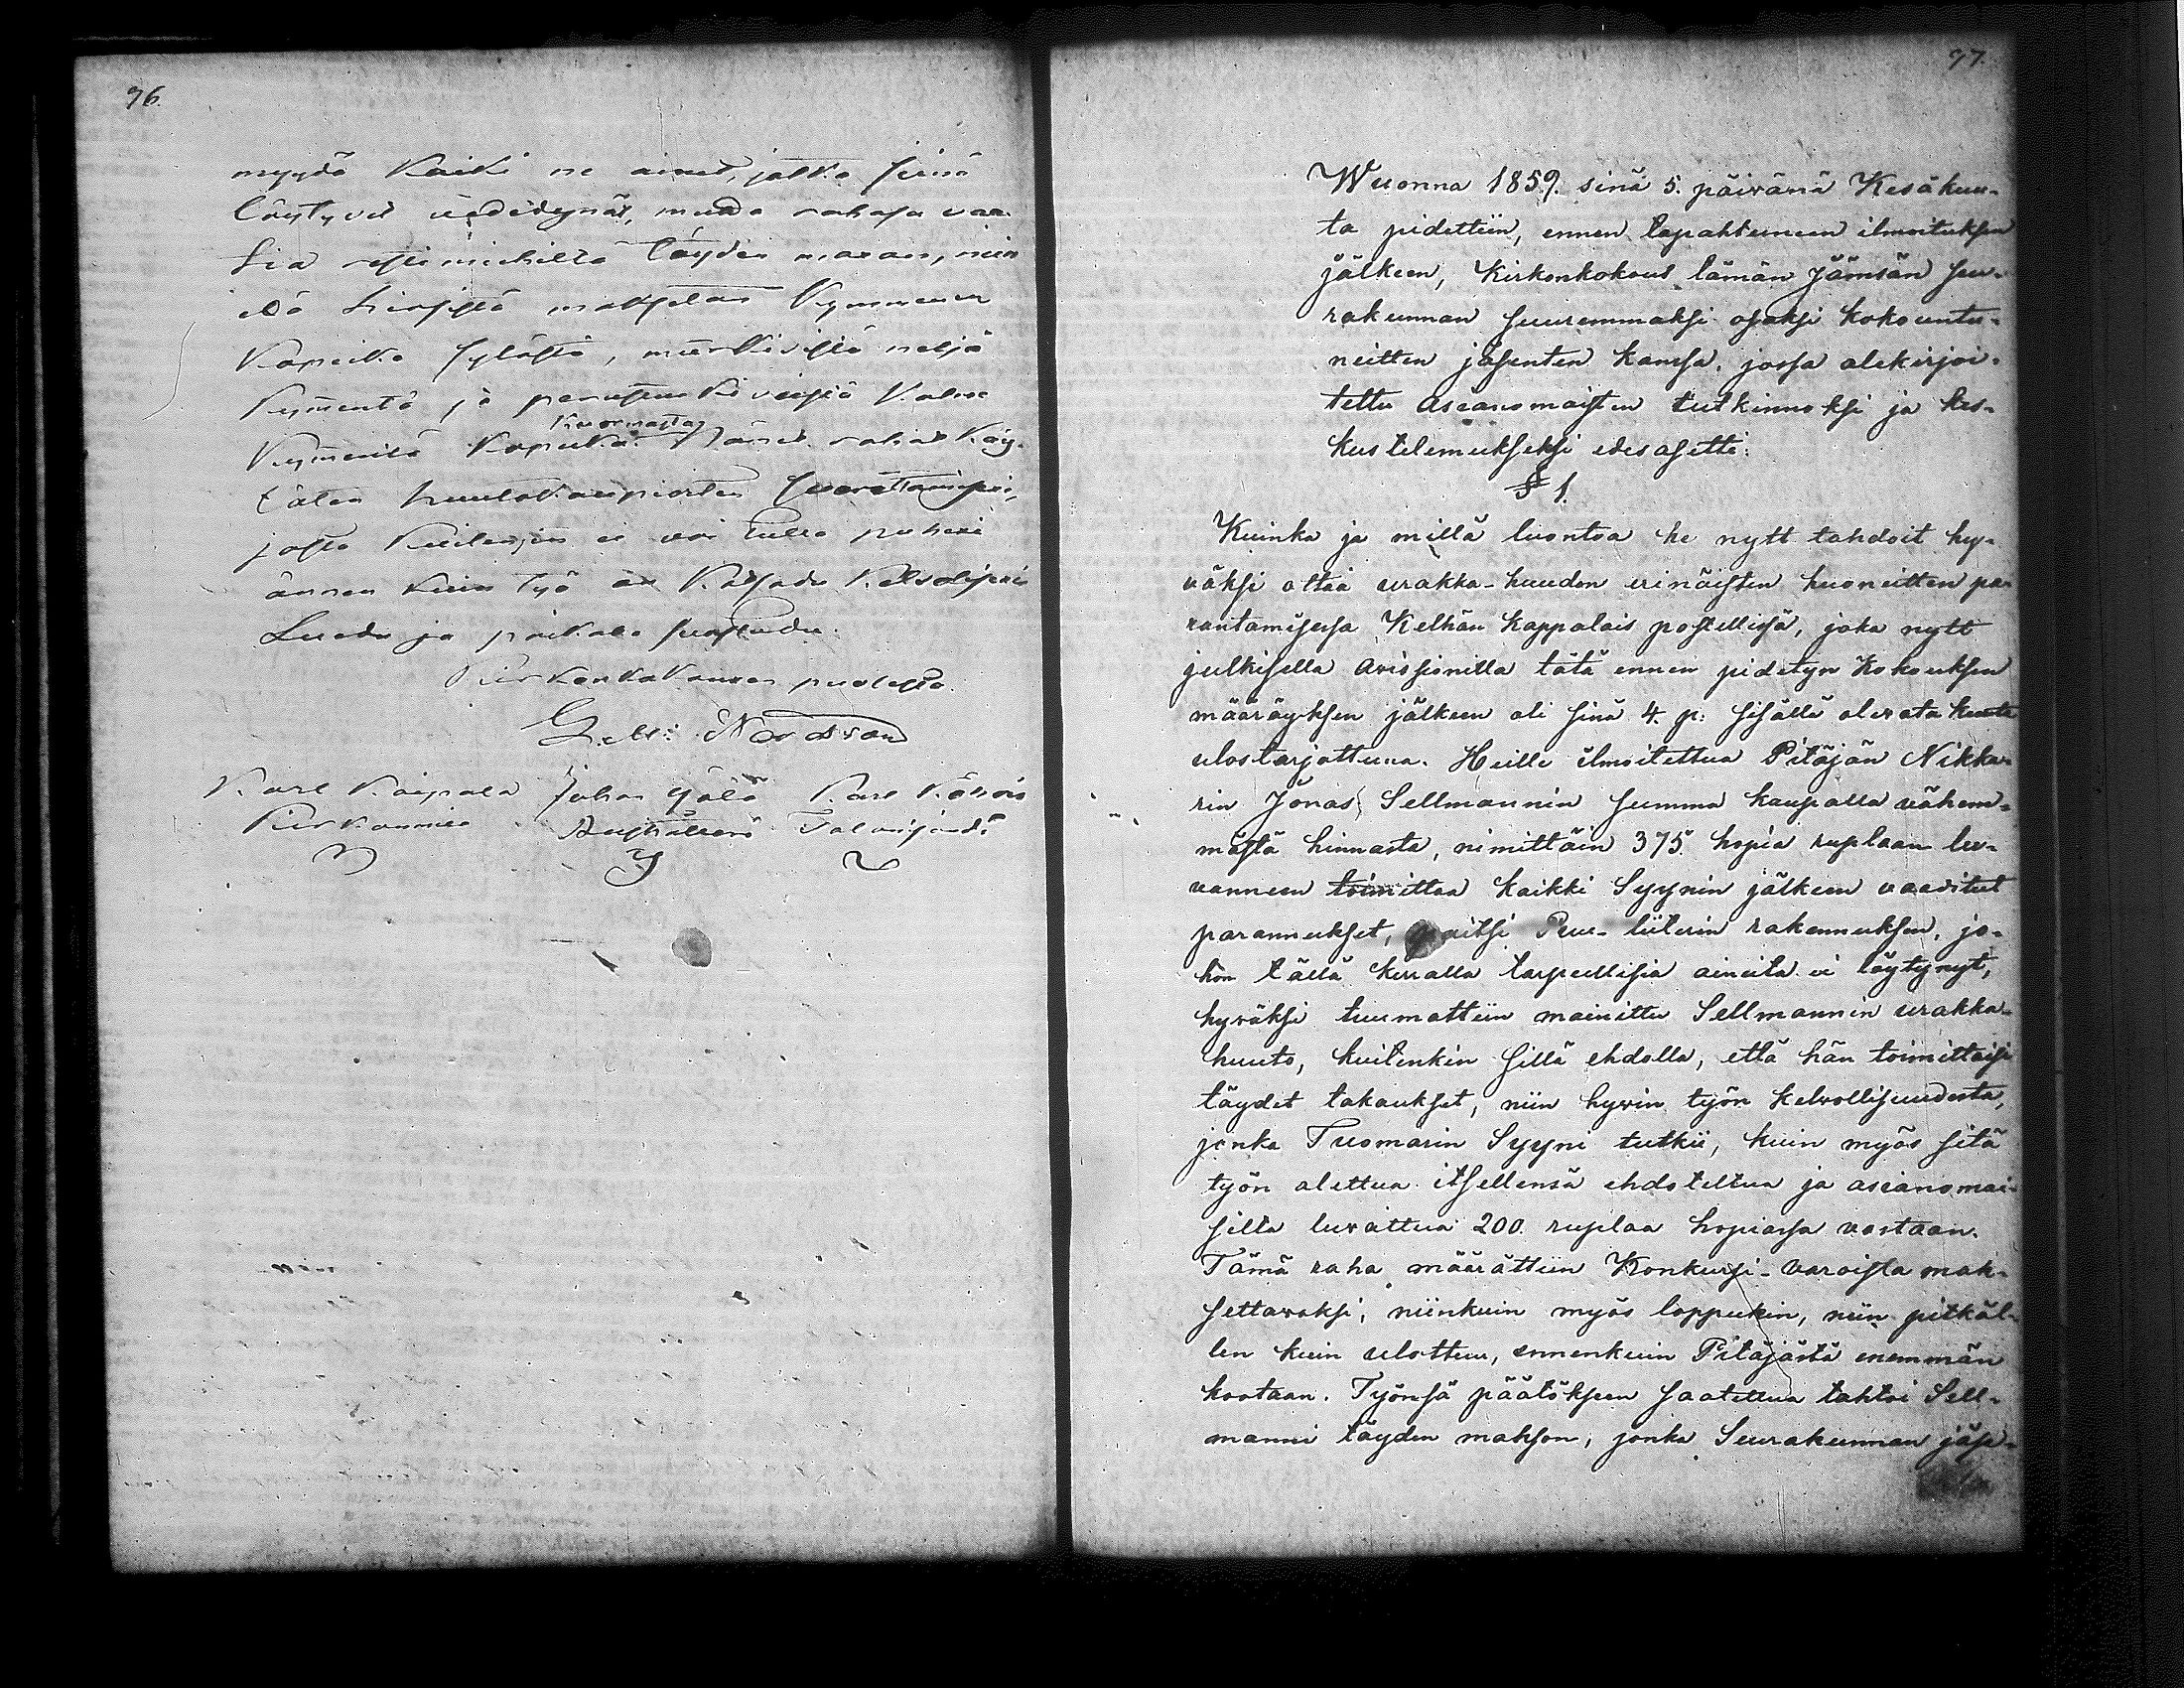 96.
myydä kaiki ne aineet, jotka siinä
löytyvät
täyden maxan, niin
että hirsistä maksetaan Kymmenen
Kopeika sylästä, muurikivistä neljä
kymmentä ja perustuskivistä kaksi
Kuormasta
Kymmentä Kopeika. Nämä rahat käy-
tetän huutokaupiosten suorittamisexi,
josta kuitengin ei voi tulla puhexi
ännen kuin työ on katsadu kelvolisexi
Luedu ja paikala suostudu.
Kirkonkokouxen puolesta.
Nordsvan
Karl Kaipala Juhan Ylä Karl
Kirkonmies Talonisändä
97.
Wuonna 1859. sinä 5. päivänä Kesäkuu-
ta pidettiin, ennen tapahtuneen ilmoituksen
jälkeen, Kirkonkokous tämän Jämsän seu-
rakunnan suuremmaksi osaksi kokountu-
neitten jäsenten kanssa, jossa alekirjoi-
tettu Aseanomaisten tutkinnoksi ja kes-
kustelemukseksi edesasetti:
§ 1.
Kuinka ja millä luontoa he nytt tahdoit hy-
väksi ottaa urakka-huudon erinäisten huoneitten pa-
rantamisessa Kelhän kappalais postellissa, joka nytt
julkisella Avissionilla tätä ennen pidetyn Kokouksen
määräyksen jälkeen oli sinä 4. p: sisällä olevata kuuta
ulostarjottuna. Heille ilmoitettua Pitäjän Nikka-
rin Jonas Sellmannin summa kaupalla vähem-
mästä hinnasta, nimittäin 375 hopia ruplaan lu-
vanneen toimittaa kaikki Syynin jälkeen vaaditut
parannukset, paitsi Puu-liiterin rakennuksen, jo-
hon tällä kerralla tarpeellisia aineita ei löytynyt,
hyväksi tuumattiin mainittu Sellmannin urakka-
huuto, kuitenkin sillä ehdolla, että hän toimittaisi
täydet takaukset, niin hyvin työn kelvollisuudesta,
jonka Tuomarin Syyni tutkii, kuin myös sitä
työn alettua itsellensä ehdoteltua ja aseanomai-
silta luvattua 200. ruplaa hopiassa vastaan.
Tämä raha määrättiin Konkursi-varoista mak-
settavaksi, niinkuin myös loppukin, niin pitkäl-
len kuin ulottuu, ennenkuin Pitäjästä enemmän
kootaan. Työnsä päätökseen saatettua tahtoi Sell-
manni täyden makson, jonka Seurakunnan jäse-